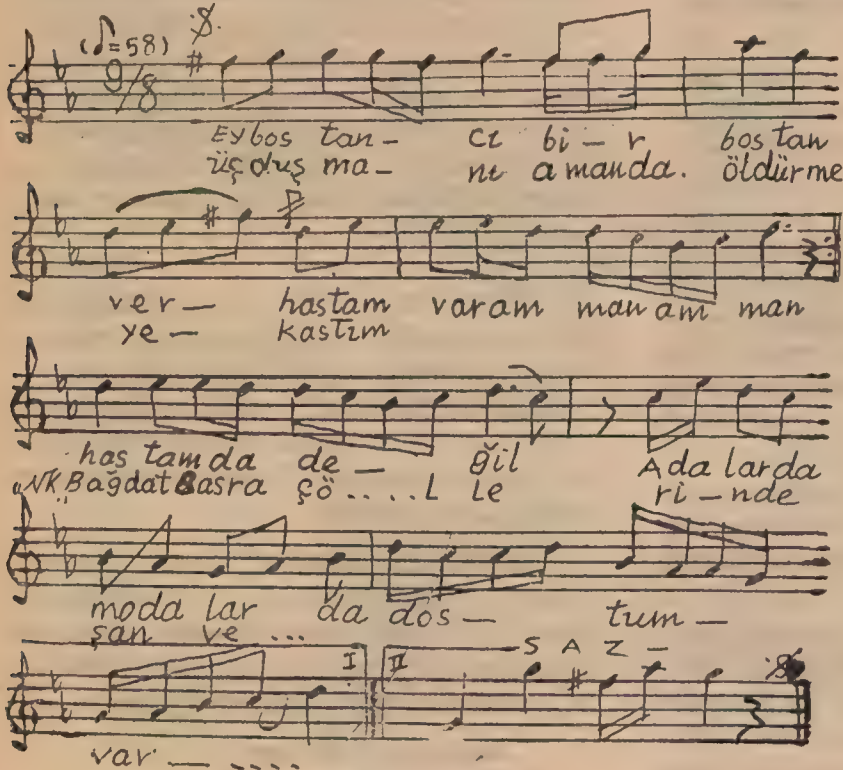 (♪=58)
9/8
Ey bos tan- cı bi - r bos tan
üç duş ma- nı a manda. öldürme
ver- hastam varam man am man
ye- kastım
has tam da de - ğil A da larda
"NK Bağdat Basra çö.....l le ri - nde
moda lar da dos- tum-
şan ve ...
I II S A Z -
var - ....